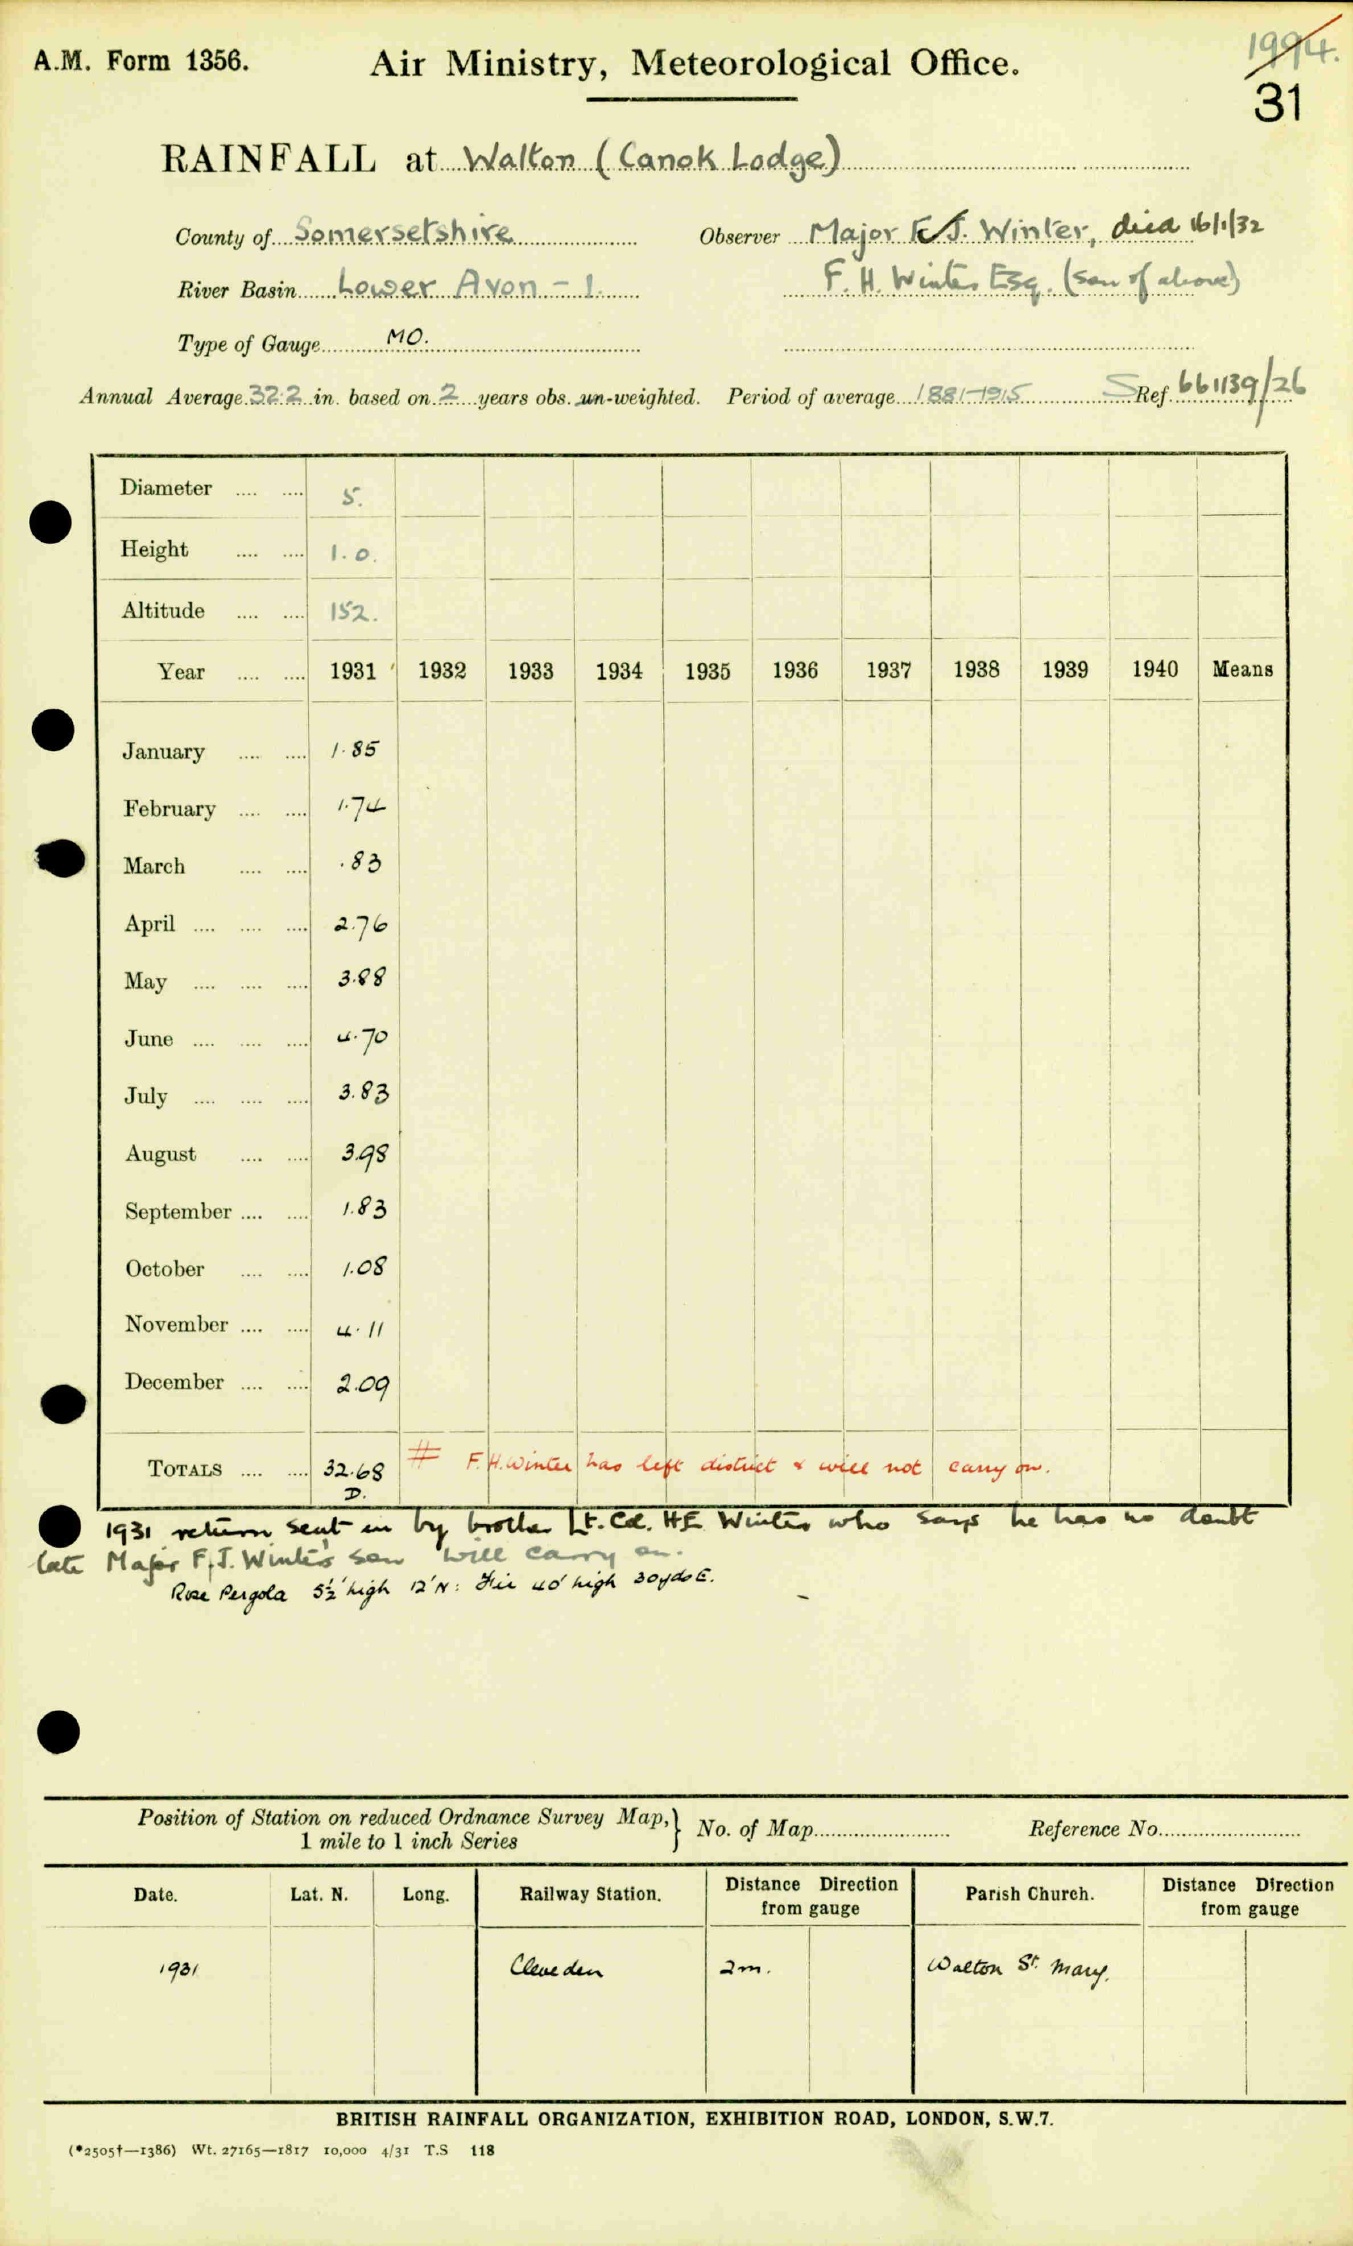 A.M. Form 1356.
Air Ministry, Meteorological Office.
1994.
31
RAINFALL at Walton (Canok Lodge)
County of Somersetshire
Observer Major F. J. Winter, died 16/1/32
River Basin Lower Avon - 1.
F. H. Winter Esq. (son of above)
Type of Gauge MO.
Annual Average 32.2 in. based on 2 years obs. un-weighted. Period of average 1881-1915 S Ref. 661139/26
Diameter .... .... 5.
Height .... .... 1.0.
Altitude .... .... 152.
Year .... .... 1931 1932 1933 1934 1935 1936 1937 1938 1939 1940 Means
January .... .... 1.85
February .... .... 1.74
March .... .... .83
April .... .... .... 2.76
May .... .... .... 3.88
June .... .... .... 4.70
July .... .... .... 3.83
August .... .... 3.98
September .... .... 1.83
October .... .... 1.08
November .... .... 4.11
December .... .... 2.09
TOTALS .... .... 32.68 # F.H. Winter has left district & will not carry on.
D.
1931 return sent in by brother Lt. Col. H.E Winter who says he has no doubt
late Major F.J. Winter's son will carry on.
Rose Pergola 5½' high 12' N: Fir 40' high 30yds E.
Position of Station on reduced Ordnance Survey Map,
1 mile to 1 inch Series
No. of Map
Reference No.
Date. Lat. N. Long. Railway Station. Distance Direction from gauge Parish Church. Distance Direction from gauge
1931 Clevedon 2m. Walton St. Mary.
BRITISH RAINFALL ORGANIZATION, EXHIBITION ROAD, LONDON, S.W.7.
(*2505†—1386) Wt. 27165—1817 10,000 4/31 T.S 118